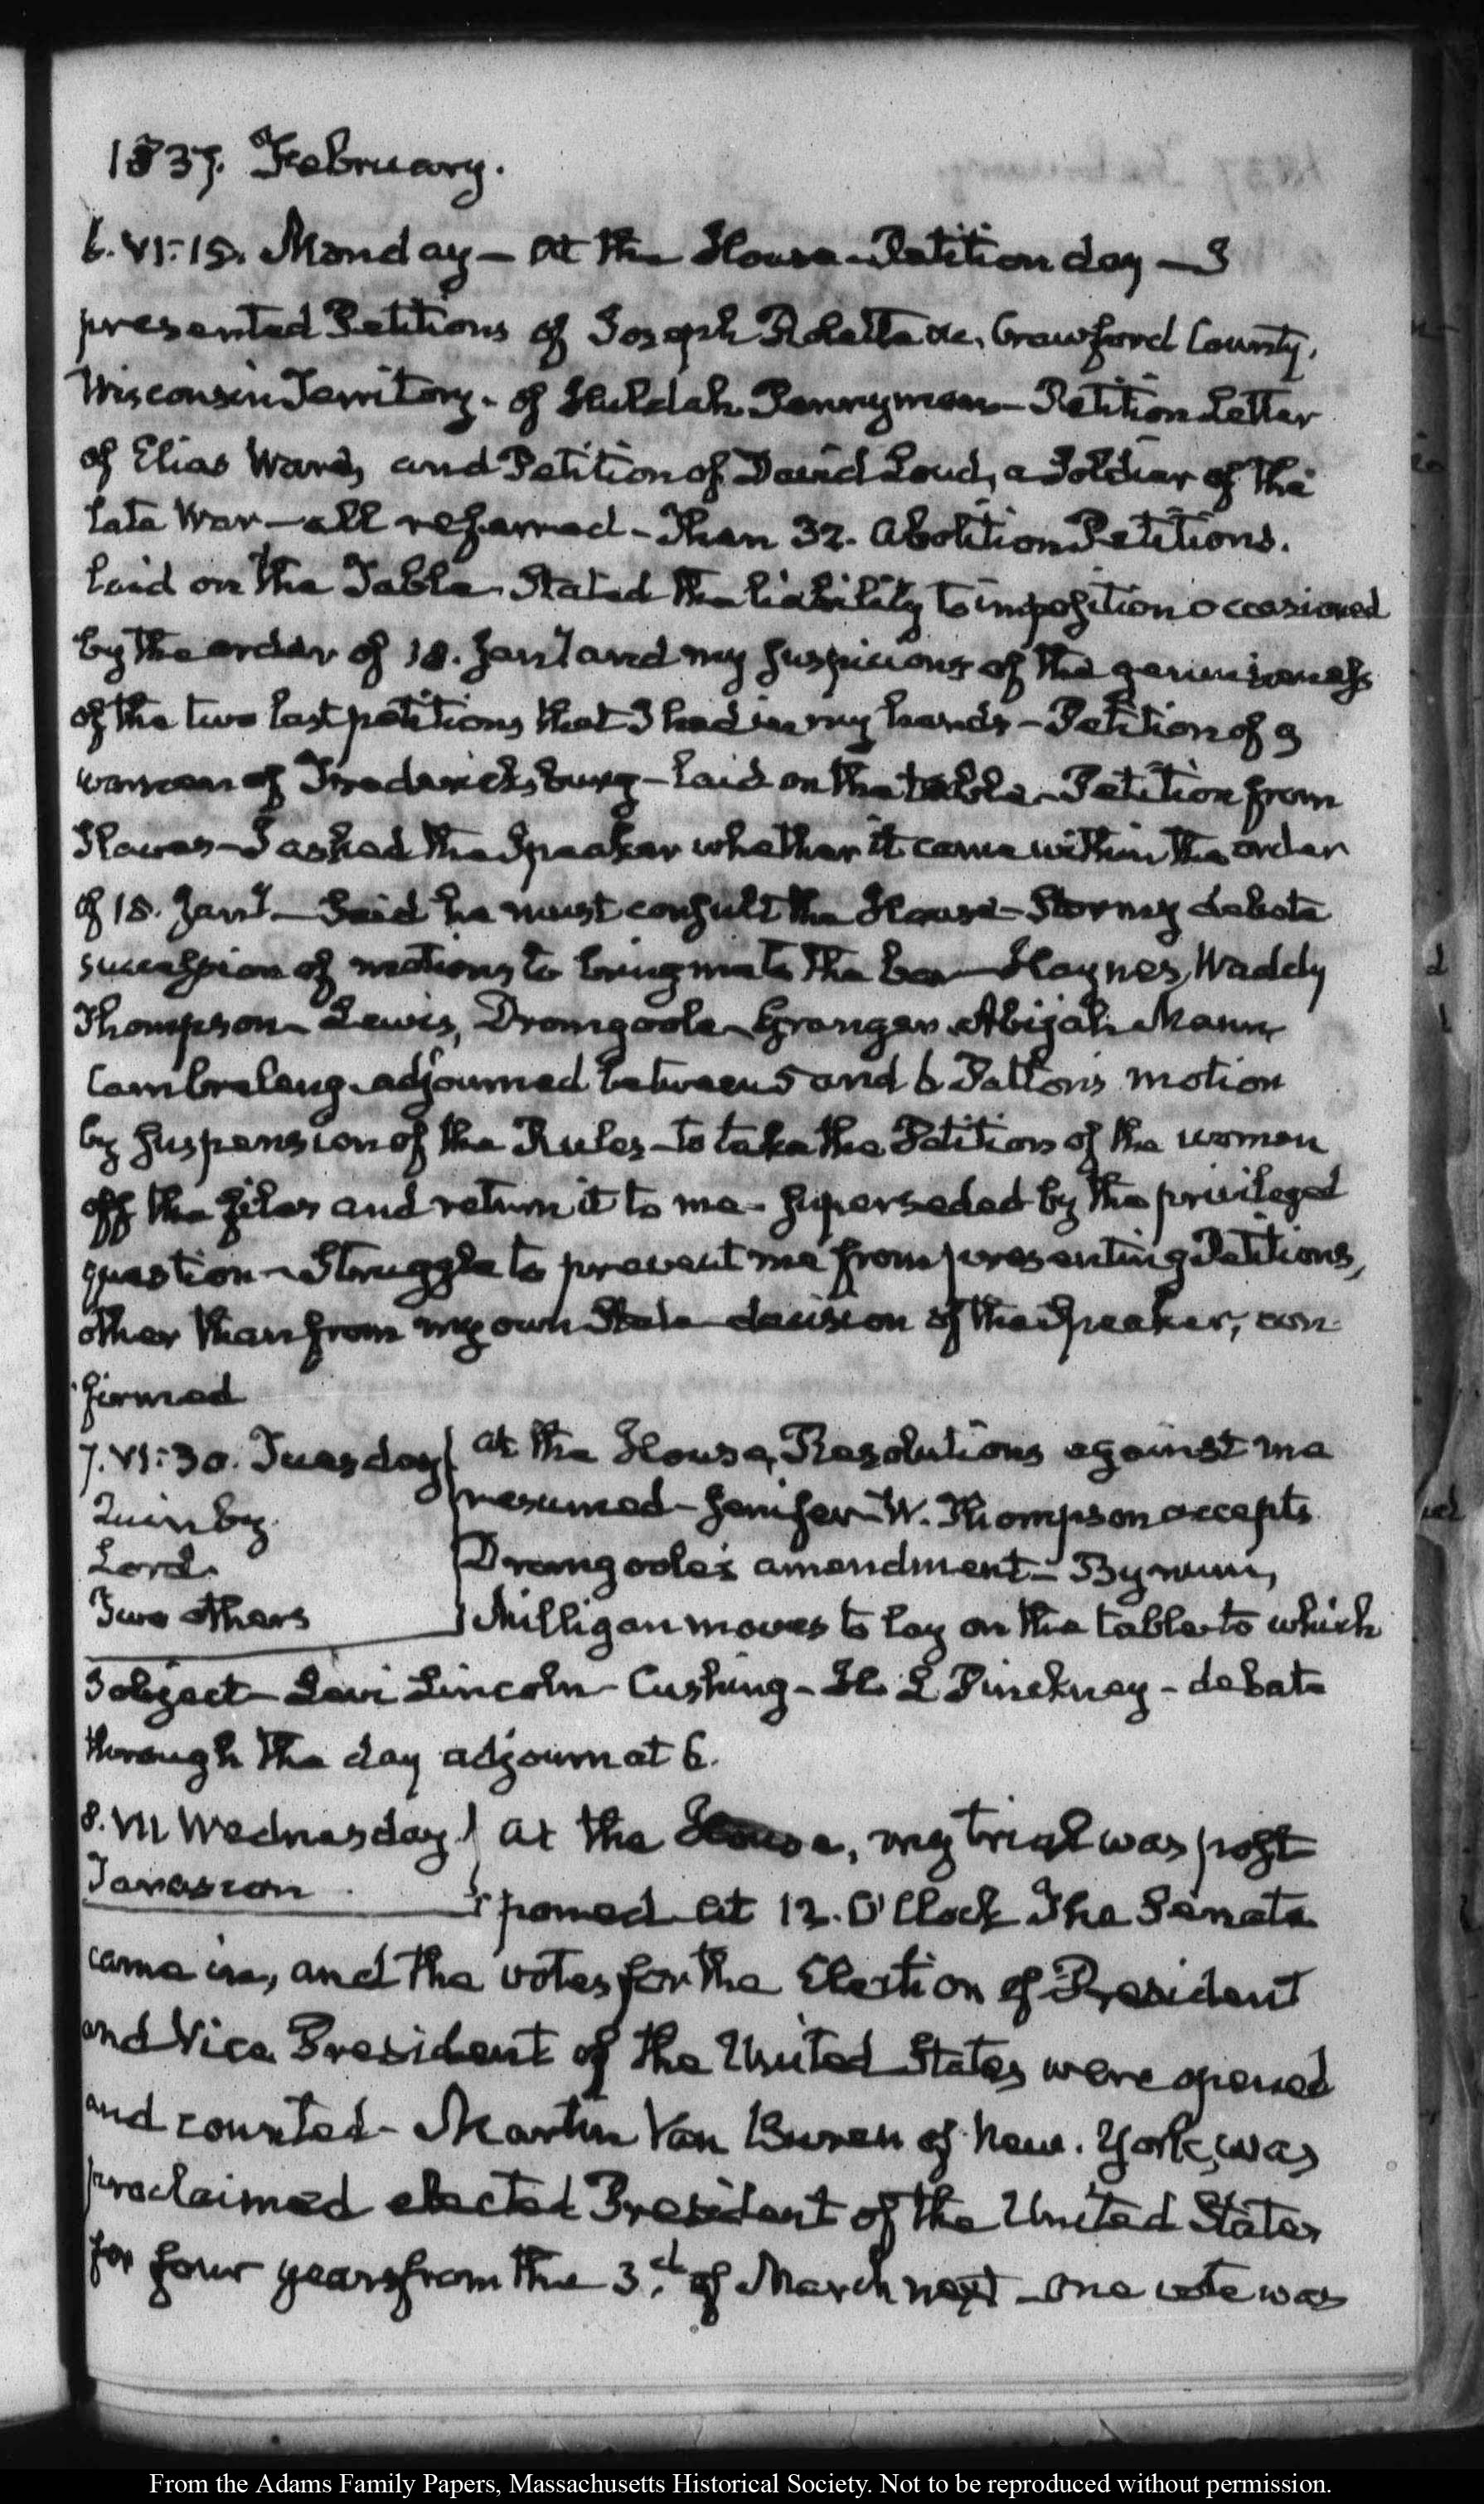 1837. February.
6. VI:15. Monday – At the House – Petition day – I
presented Petitions of Joseph Rolette &c. Crawford County,
Wisconsin Territory. of Huldah Perryman – Petition Letter
of Elias Ward, and Petition of David Loud, a Soldier of the
late War – all referred – Then 32. Abolition Petitions.
laid on the Table. Stated the liability to imposition occasioned
by the order of 18. Jany and my suspicions of the genuineness
of the two last petitions that I had in my hands – Petition of 9
women of Fredericksburg – laid on the table – Petition from
Slaves – I asked the Speaker whether it came within the order
of 18. Jany – Said he must consult the House – Stormy debate
succession of motions to bring me to the bar – Haynes, Waddy
Thompson – Lewis, Dromgoole – Granger, Abijah Mann,
Cambreleng. adjourned between 5 and 6 Patton's motion
by suspension of the Rules – to take the Petition of the women
off the files and return it to me – superseded by the privileged
question – Struggle to prevent me from presenting Petitions,
other than from my own State – decision of the Speaker, con-
firmed
7. VI:30. Tuesday at the House, Resolutions against me
Quinby resumed – Jenifer – W. Thompson accepts
Lord. Dromgoole's amendment – Bynum,
Two others Milligan moves to lay on the table to which
I object – Levi Lincoln – Cushing – H. L Pinckney – debate
through the day adjourn at 6.
8. VII Wednesday. at the House, my trial was post
poned at 12. O'Clock The Senate
came in, and the votes for the Election of President
and Vice President of the United States were opened
and counted – Martin Van Buren of New. York, was
proclaimed elected President of the United States
for four years from the 3.d of March next – One vote was
From the Adams Family Papers, Massachusetts Historical Society. Not to be reproduced without permission.